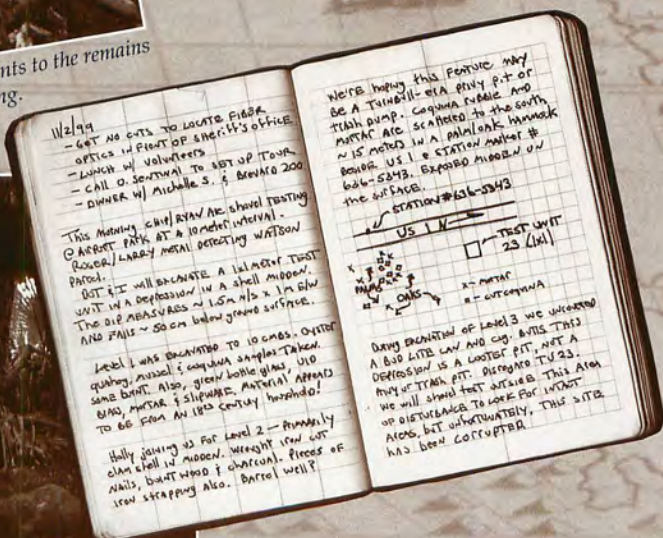 nts to the remains
ng.
11/2/99
- GOT NO CUTS TO LOCATE FIBER
OPTICS IN FRONT OF SHERIFF'S OFFICE.
- LUNCH W/ VOLUNTEERS
- CALL O. SENTINAL TO SET UP TOUR
- DINNER W/ Michelle S. & BRENARD 200
This MORNING CHIP/RYAN ARE shovel TESTING
@ AIRPORT PARK AT A 10 METER INTERVAL.
ROGER/LARRY METAL DETECTING WATSON
PARCEL.
DOT & I WILL EXCAVATE A 1x1 METER TEST
UNIT IN A DEPRESSION IN A SHELL MIDDEN.
THE DIP MEASURES ~ 1.5M N/S x 1M E/W
AND FALLS ~ 50 cm below ground surface.
Level 1 WAS EXCAVATED TO 10 CMBS. OYSTER
quahog, mussel & coquina samples TAKEN.
some burnt. Also, green bottle glass, UID
GLASS, MORTAR & SLIPWARE, MATERIAL APPEARS
TO BE FROM AN 18th CENTURY household!
Holly joining us FOR LEVEL 2 — PRIMARILY
clam shell in MIDDEN. WROUGHT IRON CUT
NAILS, BURNT WOOD & CHARCOAL. PIECES OF
IRON STRAPPING ALSO. BARREL WELL?
WE'RE hoping this FEATURE MAY
BE A TURNBULL-ERA PRIVY PIT OR
TRASH DUMP. COQUINA RUBBLE AND
MORTAR ARE SCATTERED TO THE SOUTH
~ 15 METERS IN A PALM/OAK HAMMOCK
BESIDE US 1 & STATION MARKER #
636-5343. EXPOSED MIDDEN ON
the SURFACE.
STATION #636-5343
US 1 N
TEST UNIT
23 (1x1)
PALMS
OAKS
x - MORTAR
- CUT COQUINA
DURING EXCAVATION OF LEVEL 3 WE UNCOVERED
A BUD LITE CAN AND CIG. BUTTS THIS
DEPRESSION IS A LOOTER PIT, NOT A
PRIVY OR TRASH PIT. Disregard TU 23.
WE will shovel TEST OUTSIDE This AREA
OF DISTURBANCE TO LOOK FOR INTACT
AREAS, BUT UNFORTUNATELY, THIS SITE
HAS BEEN CORRUPTED.